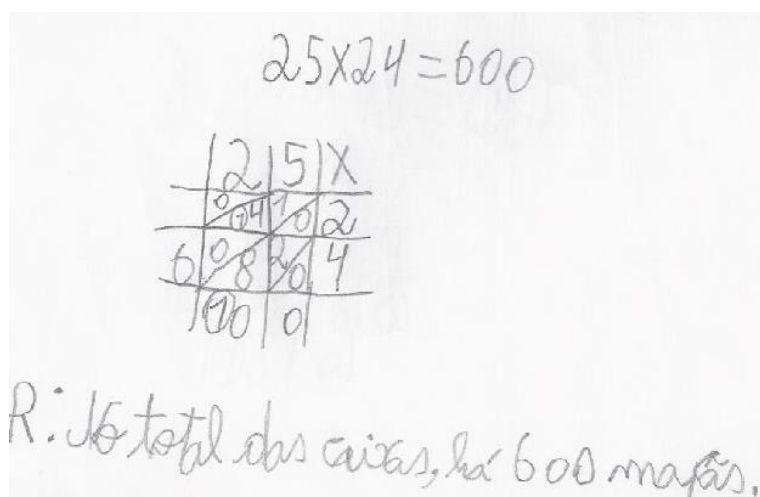 25x24=600
2 5 X
0 1 4 1 0 2
6 0 8 2 0 4
1 0 0
R: No total das caixas, há 600 maçãs.